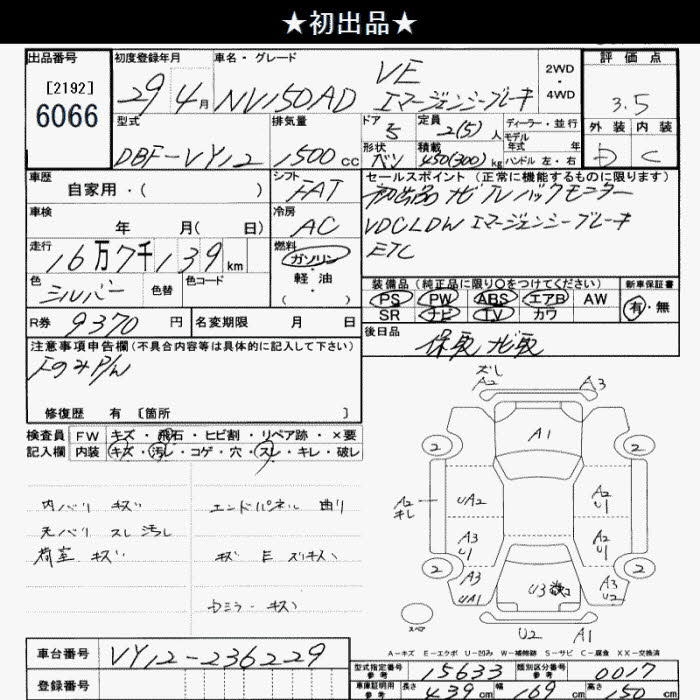 ★初出品★
出品番号
[2192]
6066
初度登録年月
29 4月
車名・グレード
NV150AD
VE
エマージェンシーブレーキ
2WD・4WD
評価点
3.5
型式
DBF-VY12
排気量
1500cc
ドア
5
定員
2(5)人
ディーラー・並行
モデル年式 年式
形状
バン
積載
450(300)kg
ハンドル 左・右
外装 内装
D C
車歴
自家用・( )
シフト
FAT
セールスポイント (正常に機能するものに限ります)
初出品 ナビ TV バックモニター
VDC LDW エマージェンシーブレーキ
ETC
車検
年 月( 日)
冷房
AC
走行
16万7千139km
燃料
ガソリン
軽油
( )
色
シルバー
色替
色コード
装備品 (純正品に限り〇をつけてください)
PS PW ABS エアB AW
SR ナビ TV カワ
新車保証書
有・無
R券
9370円
名変期限 月 日
後日品
保取 ナビ取
注意事項申告欄(不具合内容等は具体的に記入して下さい)
FのみP/W
修復歴 有 [箇所 ]
検査員記入欄
FW キズ・飛石・ヒビ割・リペア跡・×要
内装 キズ・汚レ・コゲ・穴・スレ・キレ・破レ
内バリ キズ
天バリ スレ 汚レ
荷室 キズ
エンドパネル 曲り
キズ E
キズ
ズレ
A2
A3
A1
2
2
A2
キレ
UA2
A2
U1
A3
U1
A2
U1
2
2
A3
UA1
U3
A3
U2
スペア
U2
A1
A-キズ E-エクボ U-凹み W-補修跡 S-サビ C-腐食 XX-交換済
車台番号
VY12-236229
登録番号
型式指定番号
参考
15633
類別区分番号
参考
0017
車庫証明用
参考
長さ
439cm
幅
169cm
高さ
150cm